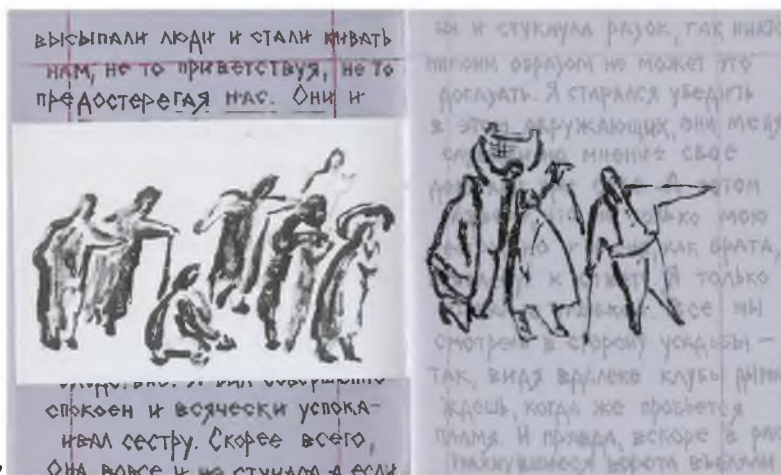 высыпали люди и стали кивать
нам, не то приветствуя, не то
предостерегая нас. Они и
спокоен и всячески успока-
ивал сестру. Скорее всего,
она вовсе и не стучала а если
бы и стукнула разок, так никто
никоим образом не может это
доказать. Я старался убедить
в этом окружающих, они меня
мнение свое
только мою
как брата,
к ответу. Я только
Все мы
смотрели в сторону усадьбы –
так, видя вдалеке клубы дыма
ждешь, когда же пробьется
пламя. И правда, вскоре в рас
пахнувшиеся ворота въехали